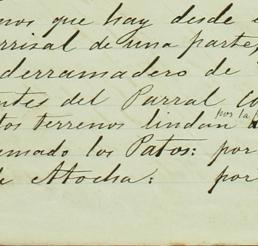 nos que hay desde e
rrisal de una parte,
derramadero de
ntes del Parral Co
tos terrenos lindan por la
emado los Patos: por
de Atocha: por